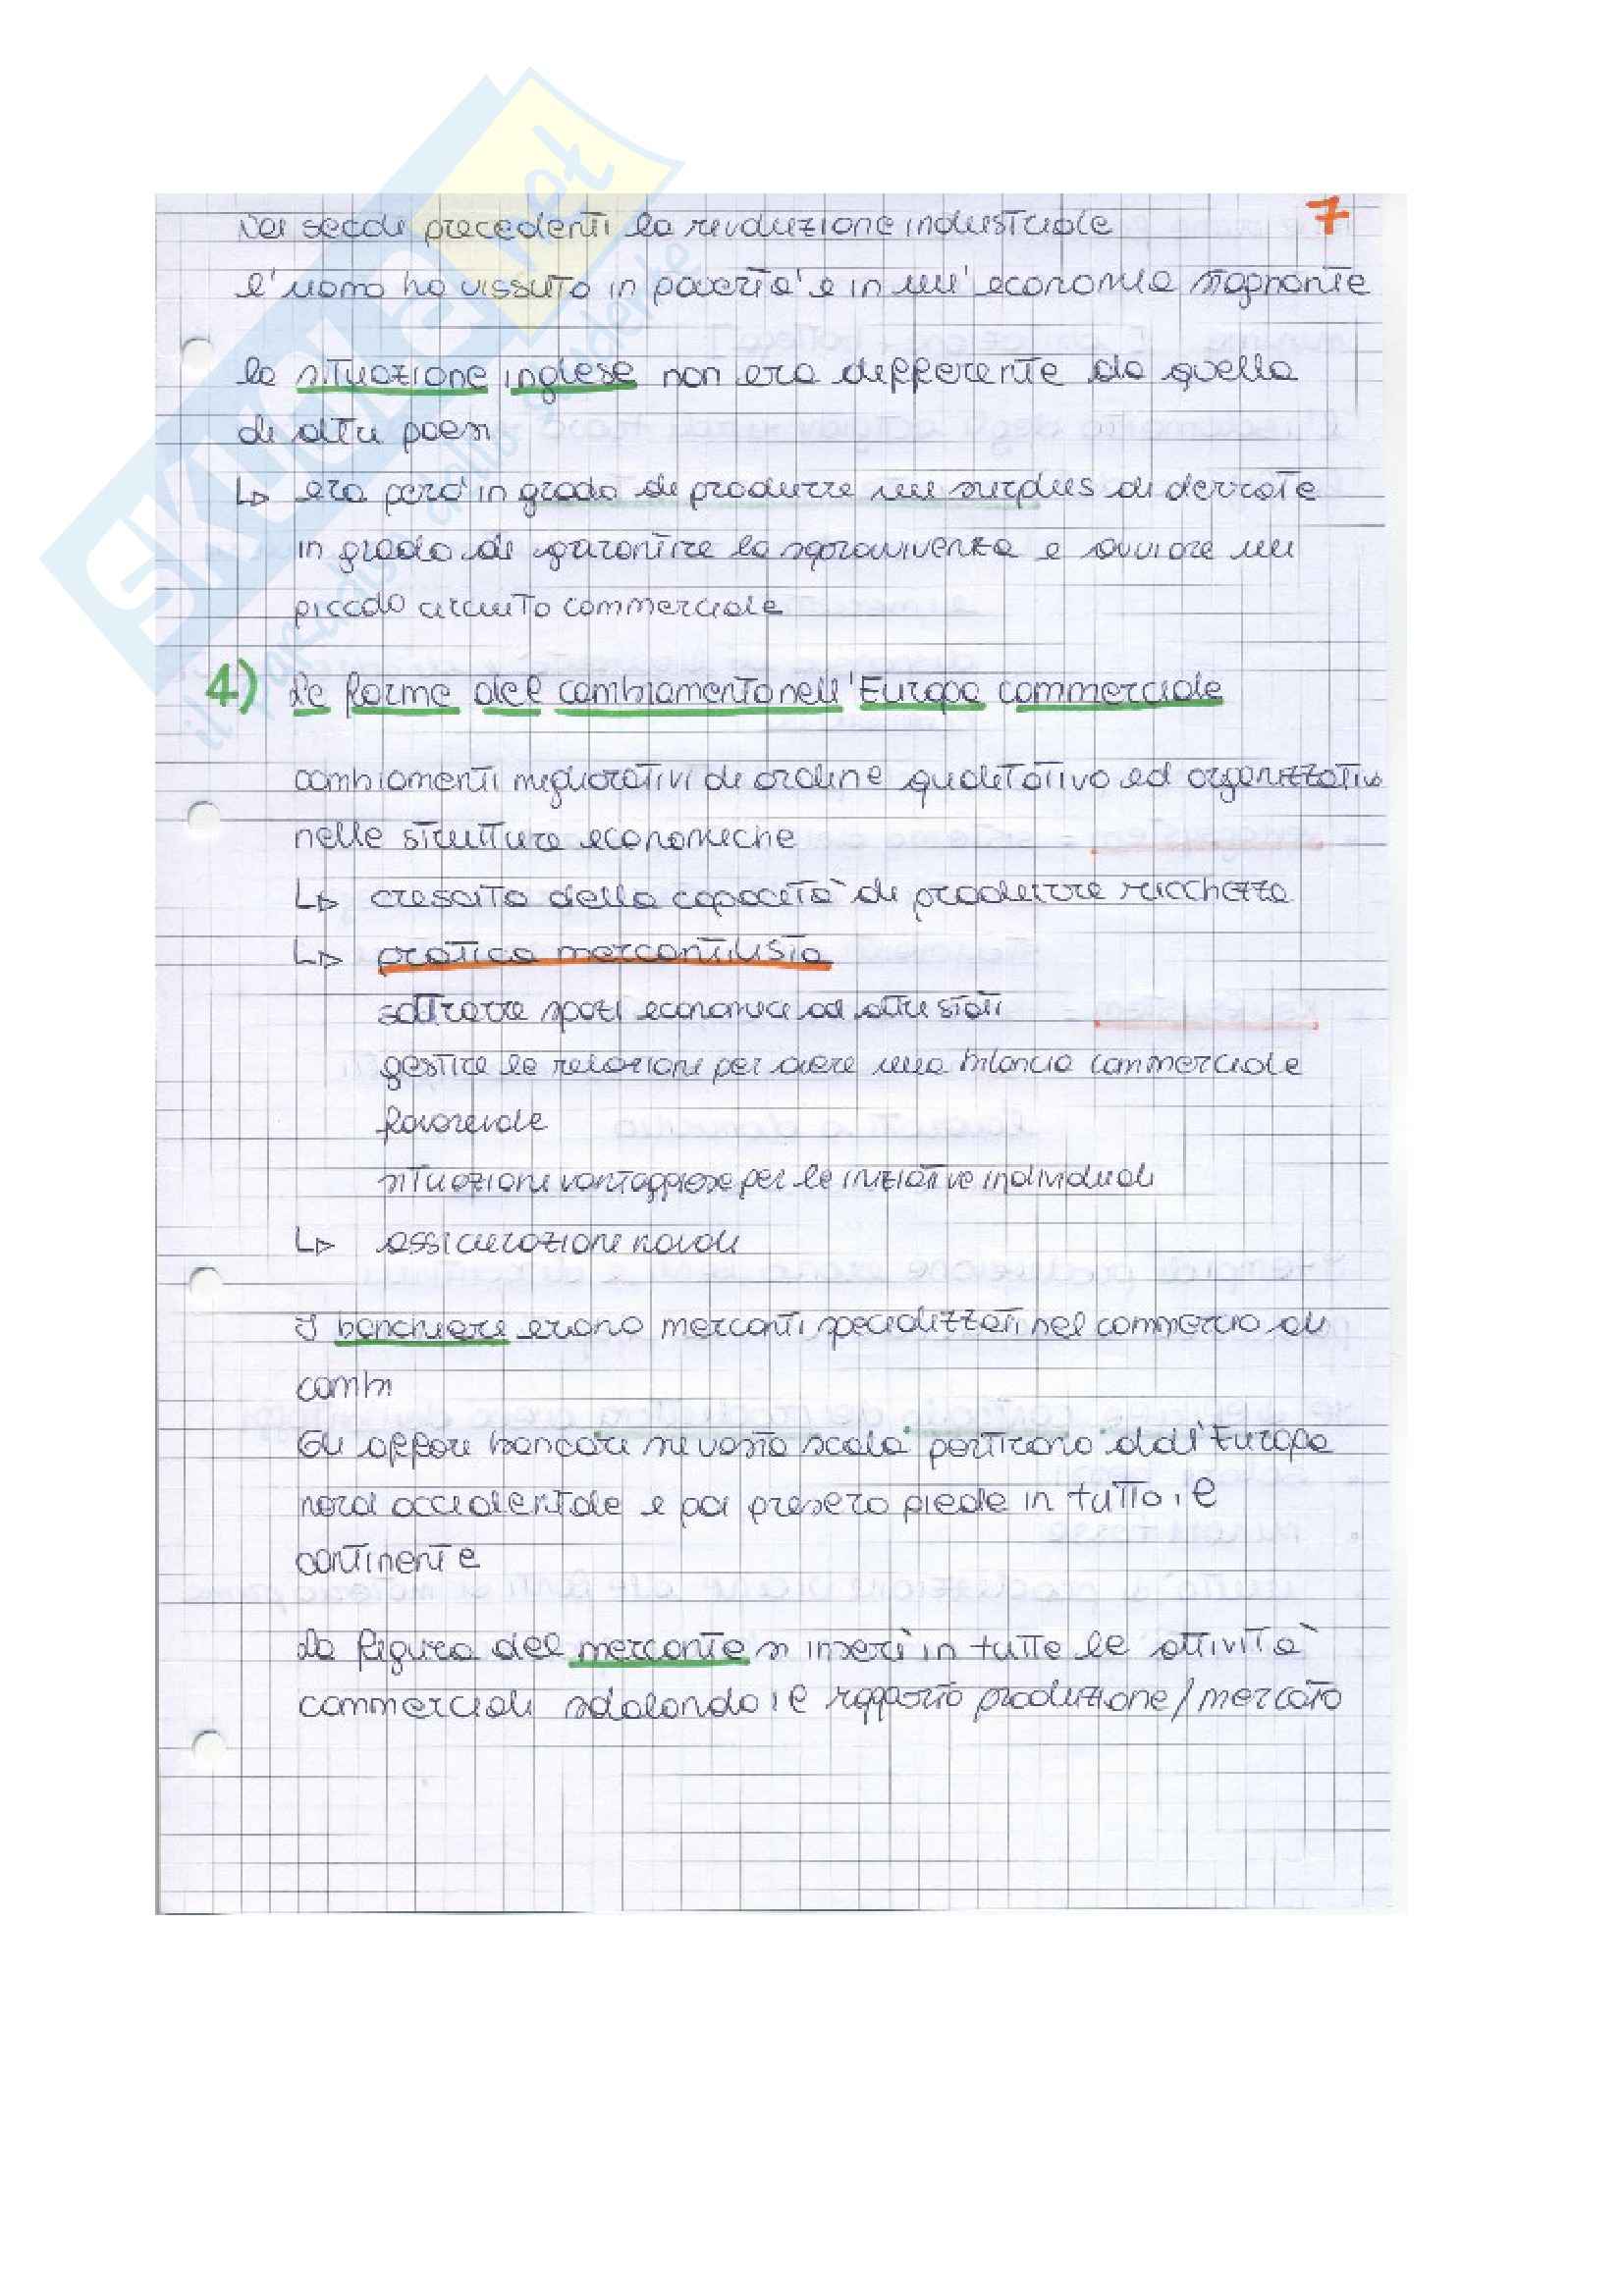 7
Nei secoli precedenti la rivoluzione industriale
l'uomo ha vissuto in poverta' e in un' economia stagnante
la situazione inglese non era differente da quella
di altri paesi
era pero' in grado di produrre un surplus di derrate
in grado di garantire la sopravvivenza e avviare un
piccolo circuito commerciale
4) Le forme del cambiamento nell'Europa commerciale
cambiamenti migliorativi di ordine qualitativo ed organizzativo
nelle strutture economiche
crescita della capacità di produrre ricchezza
pratica mercantilista
sottrarre spazi economici ad altri stati
gestire le relazioni per avere una bilancia commerciale
favorevole
situazioni vantaggiose per le iniziative individuali
assicurazioni navali
I banchieri erano mercanti specializzati nel commercio di
cambi
Gli affari bancari su vasta scala partirono dall'Europa
nord occidentale e poi presero piede in tutto il
continente
La figura del mercante si inserì in tutte le attività
commerciali saldando il rapporto produzione/mercato
SKUOLA.net
il paradiso dello studente